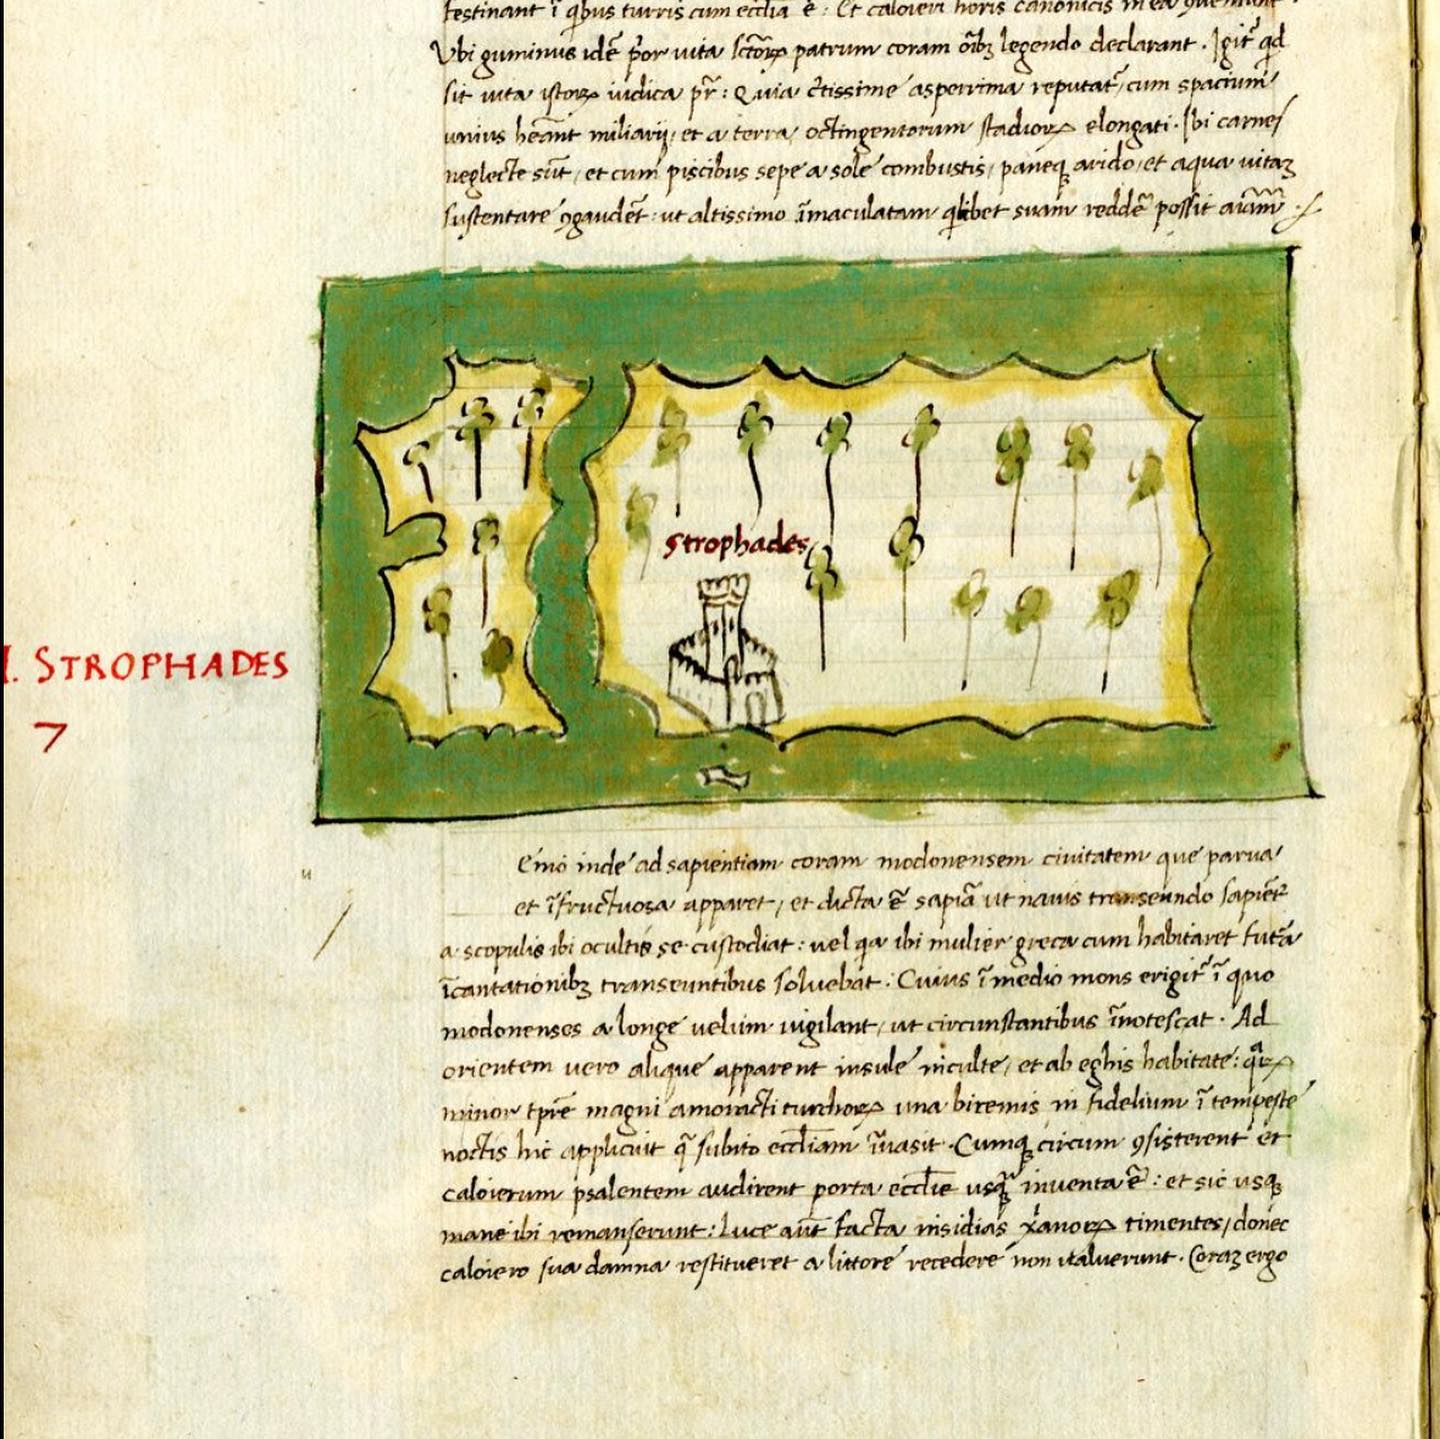 festinant ĩ qbus turris cum eccl̃ia ẽ : Et caloieri horis canonicis in ea
Vbi guminus idẽ p̃or uita sctõꝝ patrum coram oĩbꝫ legendo declarant . Igit̃ qd
sit uita istoꝝ iudica pr̃ : Quia c̃tissime asperrima reputat̃, cum spacium
unius heãnt miliarij, et a terra octingentorum stadioꝝ elongati . Ibi carnes
neglecte sũt, et cum piscibus sepe a sole combustis, paneqꝫ arido, et aqua uitaꝫ
sustentare ꝯgaudẽt : ut altissimo ĩmaculatam qlibet suam reddẽ possit aiãm .
Strophades
I. STROPHADES
7
inde ad sapientiam coram modonensem ciuitatem que parua
et ĩfructuosa apparet, et dicta ẽ sapiã ut nauis transeundo sapiẽt̃
a scopulis ibi ocultis se custodiat : uel qa ibi mulier greca cum habitaret futã
ĩcantationibꝫ transeuntibus soluebat : Cuius ĩ medio mons erigit̃ ĩ quo
modonenses a longe uelum uigilant, ut circunstantibus ĩnotescat . Ad
orientem uero alique apparent insule inculte, et ab eghis habitate : qãꝝ
minor tp̃re magni amoracti turchoꝝ una biremis infidelium ĩ tempeste
noctis hic applicuit q̃ subito eccl̃iam ĩuasit . Cumqꝫ circum ꝯsisterent et
caloierum psalentem audirent porta eccl̃ie usqꝫ inuenta ẽ : et sic usqꝫ
mane ibi remanserunt : Luce aũt facta insidias x̃anoꝝ timentes, donec
caloiero sua damna restitueret a littore recedere non ualuerunt . Coraꝫ ergo